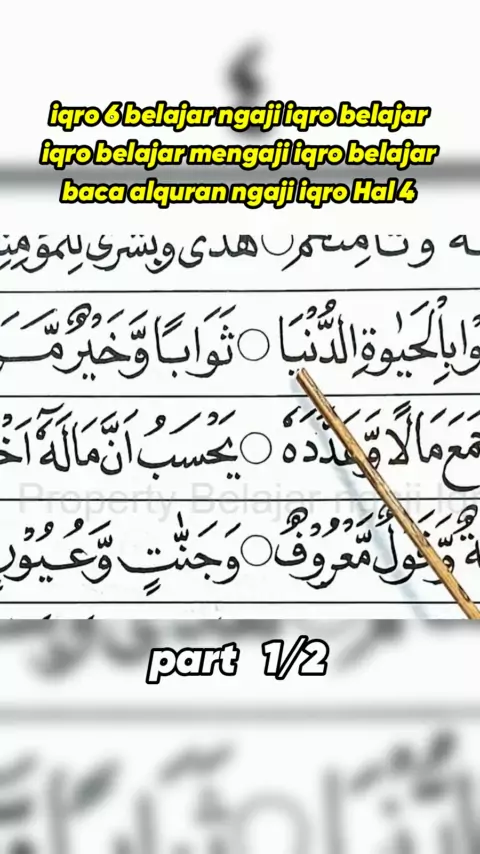 iqro 6 belajar ngaji iqro belajar
iqro belajar mengaji iqro belajar
baca alquran ngaji iqro Hal 4
هُدًى وَبُشْرَى لِلْمُؤْمِنِ
بِالْحَيٰوةِ الدُّنْيَا ○ ثَوَابًا وَّخَيْرٌ مَّرَ
مَالًا وَّعَدَّدَهُ ○ يَحْسَبُ اَنَّ مَالَهٗٓ اَخْ
وَّقَوْلٌ مَّعْرُوْفٌ ○ وَجَنّٰتٍ وَّعُيُوْنٍ
Property Belajar ngaji Iq
part 1/2